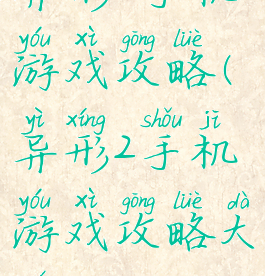 yóu xì gōng lüè
游戏攻略(
yì xíng shǒu jī
异形2手机
yóu xì gōng lüè dà
游戏攻略大